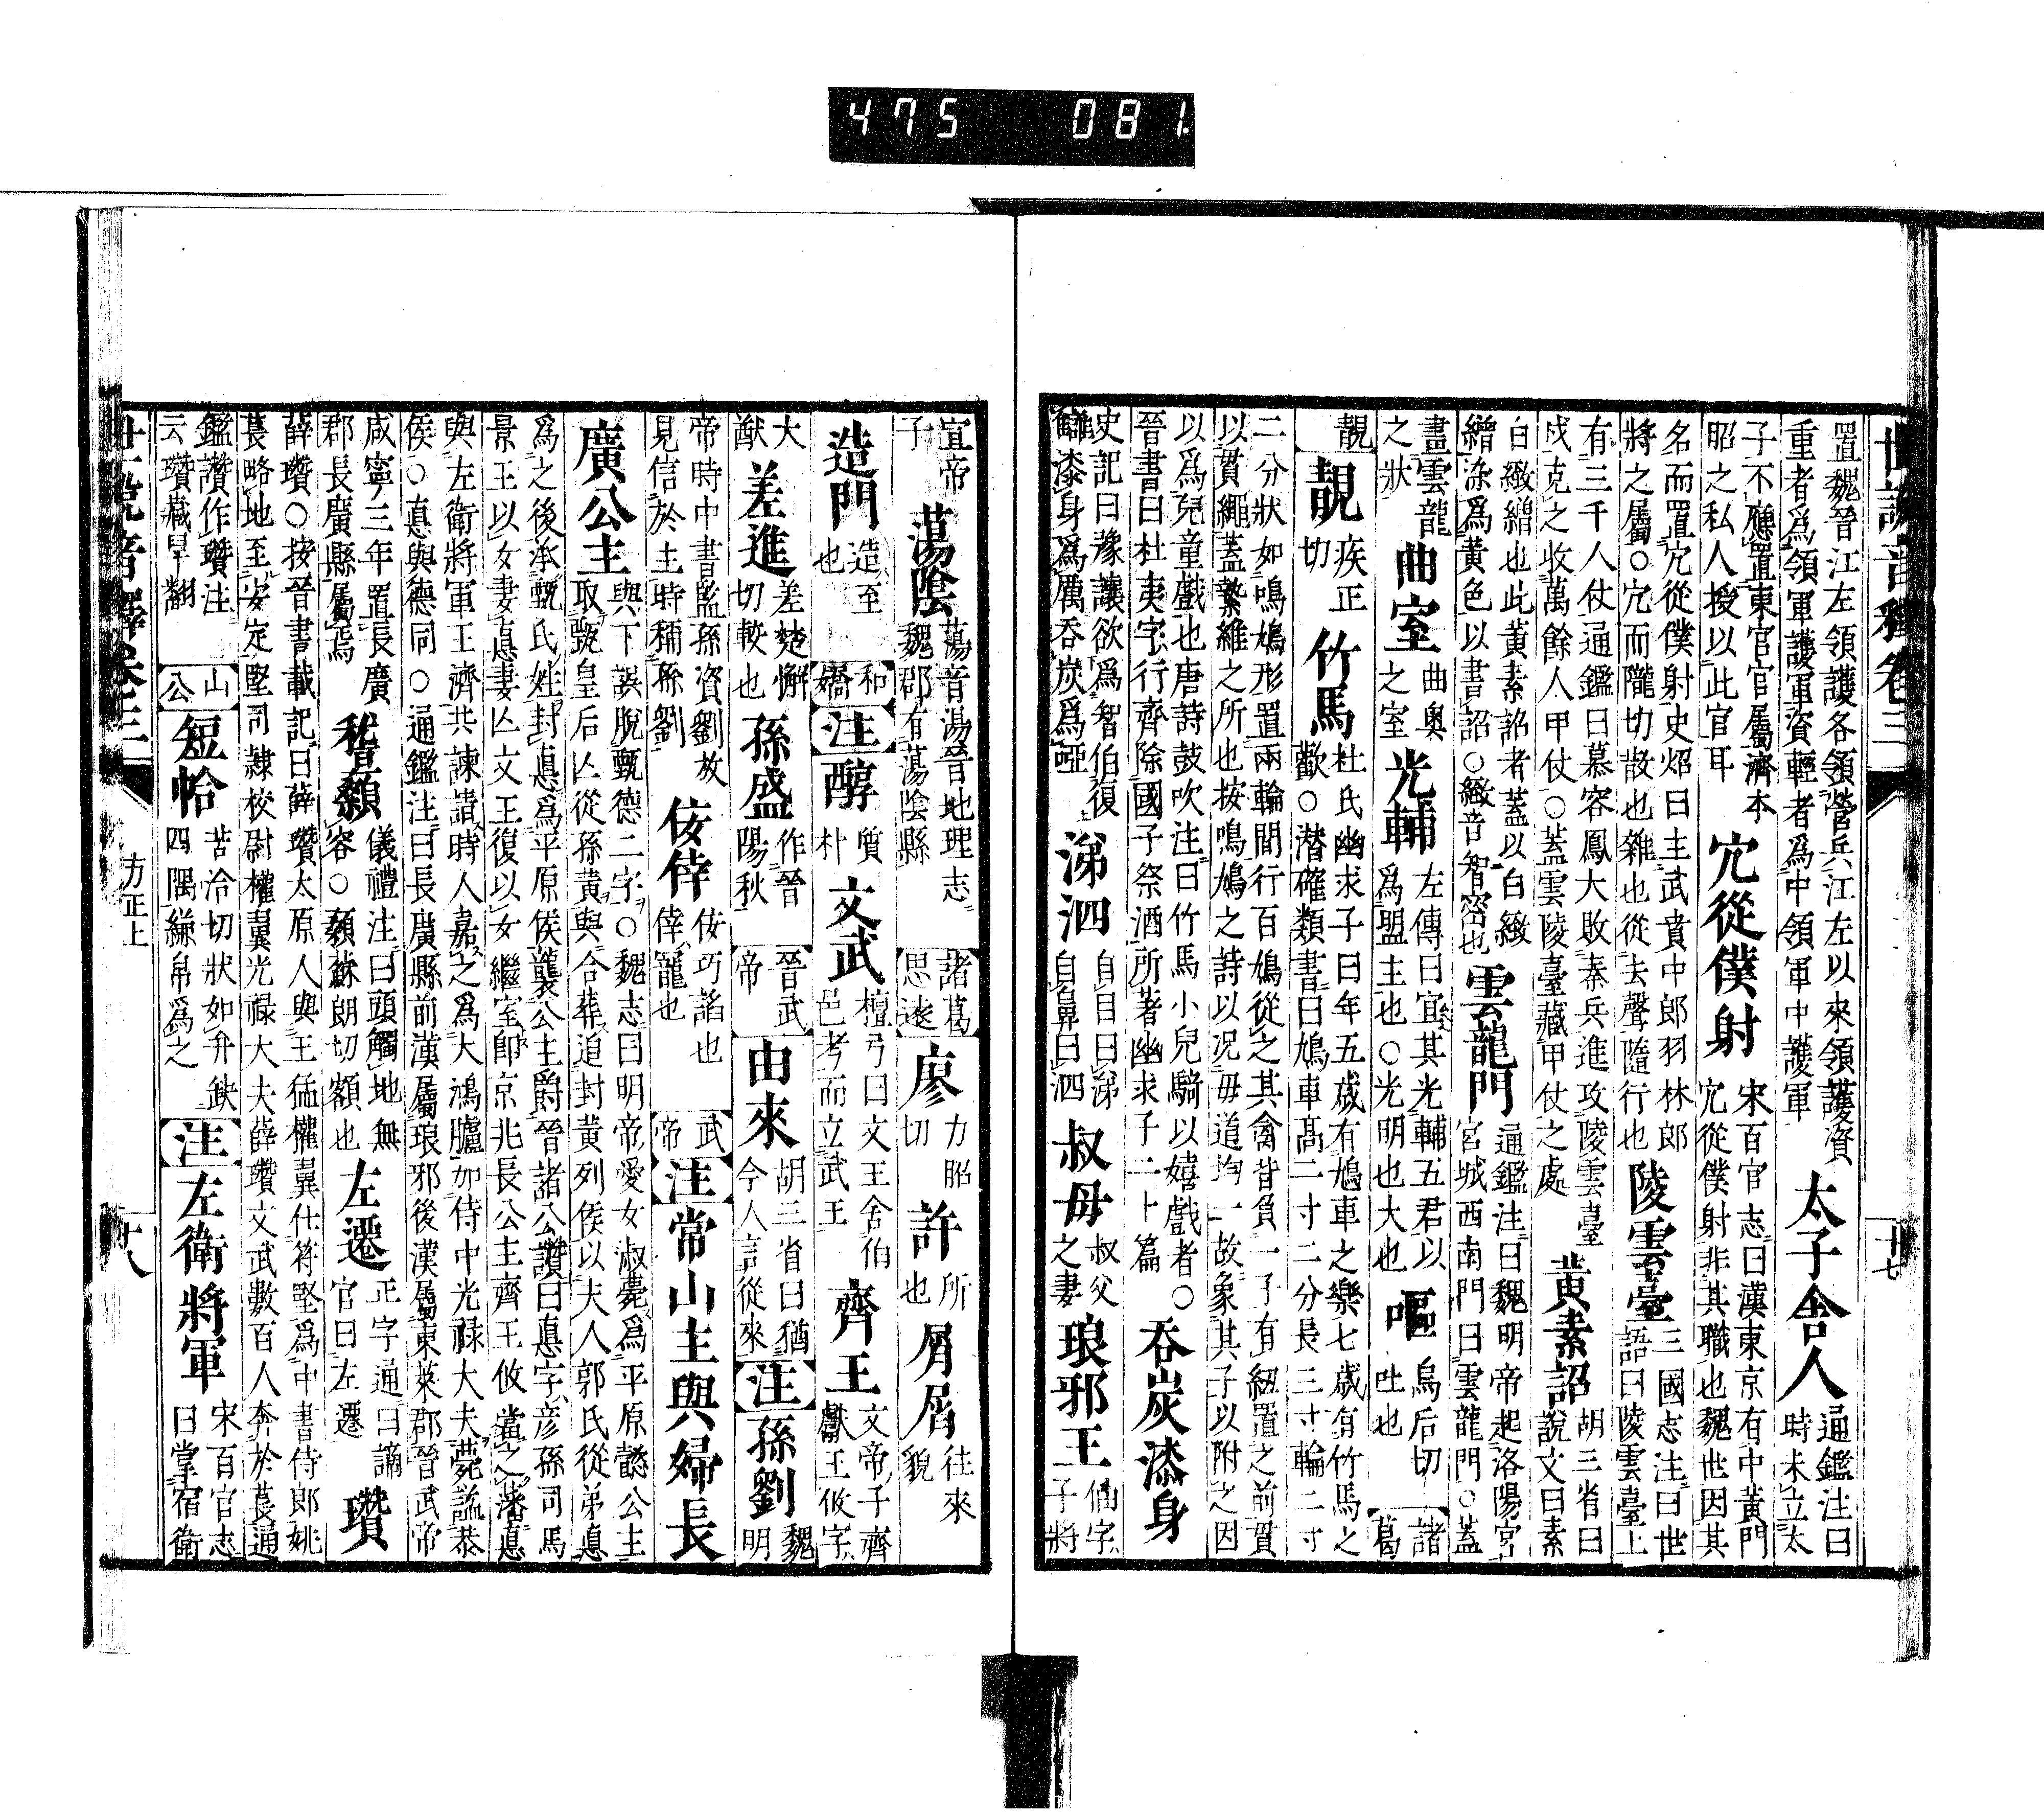 475 081.
世說音釋卷三 十七
置魏晉江左領護各領營兵江左以來領護資
重者爲領軍護軍資輕者爲中領軍中護軍
太子舍人
通鑑注曰
時未立太
子不應置東宮官屬濟本
昭之私人授以此官耳
宂從僕射
宋百官志曰漢東京有中黃門
宂從僕射非其職也魏世因其
名而置宂從僕射史炤曰主武賁中郎羽林郎
將之屬○宂而隴切散也雜也從去聲隨行也
陵雲臺
三國志注曰世
語曰陵雲臺上
有三千人仗通鑑曰慕容鳳大敗秦兵進攻陵雲臺
戍克之收萬餘人甲仗○蓋雲陵臺藏甲仗之處
黃素詔
胡三省曰
說文曰素
白緻繒也此黃素詔者蓋以白緻
繒染爲黃色以書詔○緻音智密也
雲龍門
通鑑注曰魏明帝起洛陽宮
宮城西南門曰雲龍門○蓋
畫雲龍
之狀
曲室
曲奥
之室
光輔
左傳曰宜其光輔五君以
爲盟主也○光明也大也
嘔
烏后切
吐也
諸
葛
靚
靚
疾正
切
竹馬
杜氏幽求子曰年五歲有鳩車之樂七歲有竹馬之
歡○潜確類書曰鳩車高二寸二分長三寸輪二寸
二分狀如鳴鳩形置兩輪間行百鳩從之其禽背負一子有紐置之前貫
以貫繩蓋縶維之所也按鳴鳩之詩以况毋道均一故象其子以附之因
以爲兒童戲也唐詩鼓吹注曰竹馬小兒騎以嬉戲者○
晉書曰杜夷字行齊除國子祭酒所著幽求子二十篇
吞炭漆身
史記曰豫讓欲爲智伯復
讎漆身爲厲吞炭爲啞
涕泗
自目曰涕
自鼻曰泗
叔母
叔父
之妻
琅邪王
伷字
子將
宣帝
子
蕩陰
蕩音湯晉地理志
魏郡有蕩陰縣
諸葛
思遠
廖
力昭
切
許
所
也
屑屑
往來
貌
造門
造至
也
和
嶠
注
醇
質
朴
文武
檀弓曰文王舍伯
邑考而立武王
齊王
文帝子齊
獻王攸字
大
猷
差進
差楚懈
切較也
孫盛
作晉
陽秋
晉武
帝
由來
胡三省曰猶
今人言從來
注
孫劉
魏
明
帝時中書監孫資劉放
見信於主時稱孫劉
佞倖
佞巧諂也
倖寵也
武
帝
注
常山主與婦長
廣公主
與下誤脫甄德二字○魏志曰明帝愛女淑薨爲平原懿公主
取甄皇后亾從孫黃與合葬追封黃列侯以夫人郭氏從弟悳
爲之後承甄氏姓封悳爲平原侯襲公主爵晉諸公讚曰悳字彦孫司馬
景王以女妻悳妻亾文王復以女繼室即京兆長公主齊王攸當之藩悳
與左衛將軍王濟共諫請時人嘉之爲大鴻臚加侍中光祿大夫薨謚恭
侯○悳與德同○通鑑注曰長廣縣前漢屬琅邪後漢屬東萊郡晉武帝
咸寧三年置長廣
郡長廣縣屬焉
稽顙
儀禮注曰頭觸地無
容○顙蘇朗切額也
左遷
正字通曰謫
官曰左遷
瓚
薛瓚○按晉書載記曰薛瓚太原人與王猛權翼仕苻堅爲中書侍郎姚
萇略地至安定堅司隸校尉權翼光祿大夫薛瓚文武數百人奔於萇通
鑑讚作瓚注
云瓚藏旱翻
山
公
短帢
苦洽切狀如弁缺
四隅縑帛爲之
注
左衛將軍
宋百官志
曰掌宿衛
世說音釋卷三 方正上 十八